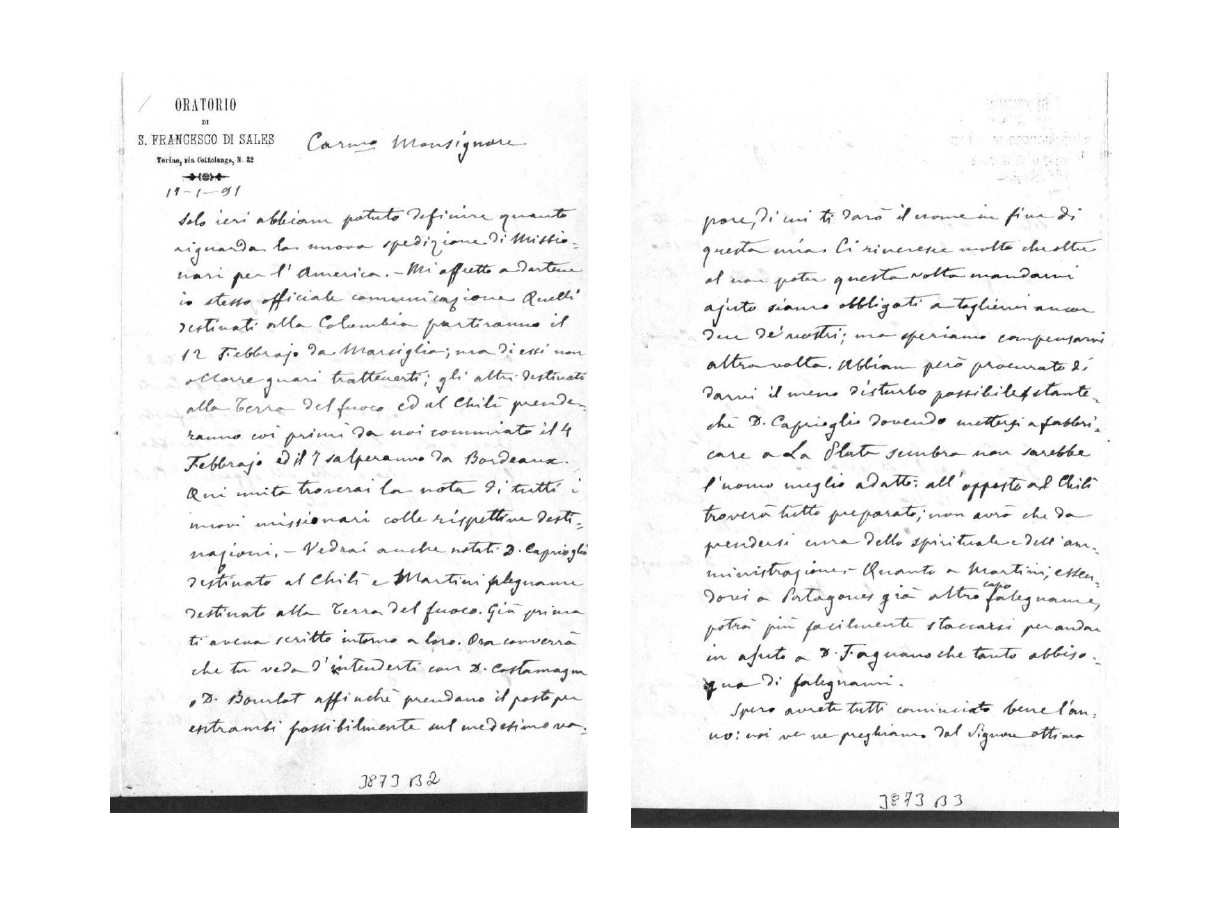 ORATORIO
DI
S. FRANCESCO DI SALES
Torino, via Cottolengo, N. 32
Carmo Monsignore
19-1-91
Solo ieri abbiam potuto definire quanto
riguarda la nuova spedizione di Missio=
nari per l'America. - Mi affretto a dartene
io stesso officiale comunicazione Quelli
destinati alla Colombia partiranno il
12 Febbrajo da Marsiglia; ma di essi non
occorre guari trattenerti; gli altri destinati
alla Terra del fuoco ed al Chilì prende=
ranno coi primi da noi commiato il 4
Febbrajo ed il 7 salperanno da Bordeaux.
Qui unita troverai la nota di tutti i
nuovi missionari colle rispettive desti=
nazioni. - Vedrai anche notati D. Caprioglio
destinato al Chilì e Martini falegname
destinato alla Terra del fuoco. Già prima
ti aveva scritto intorno a loro. Ora converrà
che tu veda d'intenderti con D. Costamagna
o D. Bourlot affinchè prendano il posto per
entrambi possibilmente sul medesimo va=
3873 B2
pore, di cui ti darò il nome in fine di
questa mia. Ci rincresce molto che oltre
al non poter questa volta mandarvi
ajuto siamo obbligati a togliervi ancor
due de' nostri; ma speriamo compensarvi
altra volta. Abbiam però procurato di
darvi il meno disturbo possibile stante=
chè D. Caprioglio dovendo mettersi a fabbri=
care a La Plata sembra non sarebbe
l'uomo meglio adatto: all'opposto al Chilì
troverà tutto preparato; non avrà che da
prendersi cura dello spirituale e dell'am=
ministrazione - Quanto a Martini, essen=
dovi a Patagones già altro capo falegname,
potrà più facilmente staccarsi per andar
in ajuto a D. Fagnano che tanto abbiso=
gna di falegnami.
Spero avrete tutti cominciato bene l'an=
no: noi ve ne preghiamo dal Signore ottima
3873 B3